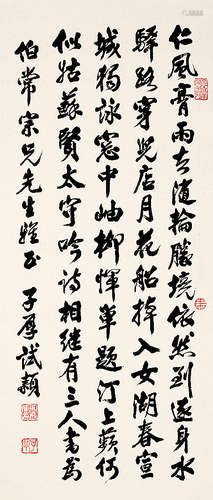 仁風膏雨去随輪勝境依然到逐身水
驛路穿児店月花船棹入女湖春宣
城獨詠窓中岫柳惲單題汀上蘋何
似姑蘇賢太守吟诗相継有三人書為
伯常宗兄先生雅正 子厚試穎